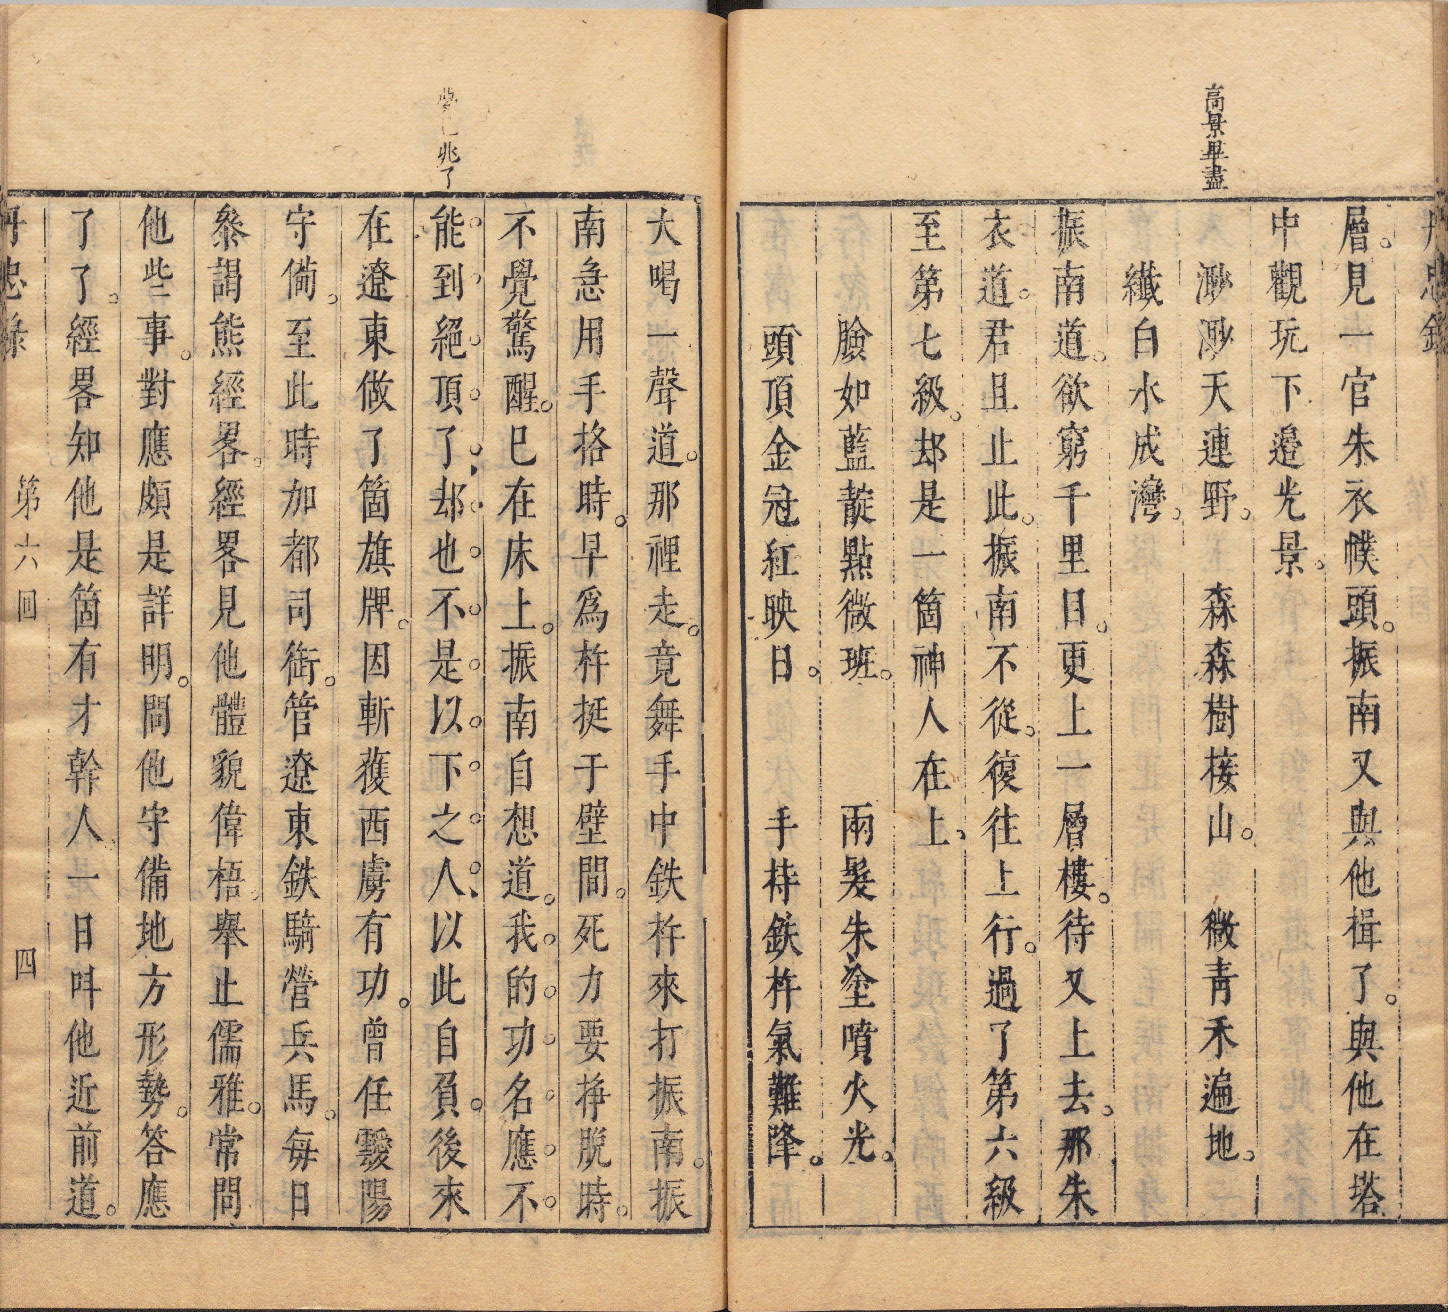 丹忠錄
高景畢盡
層見一官朱衣幞頭。振南又與他揖了。與他在塔
中觀玩下邉光景。
渺渺天連野。森森樹接山。微靑禾遍地。
纖白水成灣。
振南道。欲窮千里目。更上一層樓。待又上去。那朱
衣道。君且止此。振南不從。復往上行。過了第六級
至第七級。却是一箇神人在上、
臉如藍靛點微班。兩髮朱塗噴火光。
頭頂金冠紅映日。手持鉄杵氣難降。
大喝一聲道。那裡走。竟舞手中鉄杵來打振南。振
南急用手格時。早爲杵挺于壁間。死力要掙脫時。
不覺驚醒。已在床上。振南自想道。我的功名應不
能到絕頂了。却也不是以下之人。以此自負。後來
在遼東做了箇旗牌。因斬獲西虜有功。曾任靉陽
守備。至此時加都司銜。管遼東鉄騎營兵馬。每日
叅謁熊經畧。經畧見他體貌偉梧。舉止儒雅。常問
他些事。對應頗是詳明。問他守備地方形勢。答應
了了。經畧知他是箇有才幹人、一日呌他近前道。
兆了
丹忠錄
第六回
四